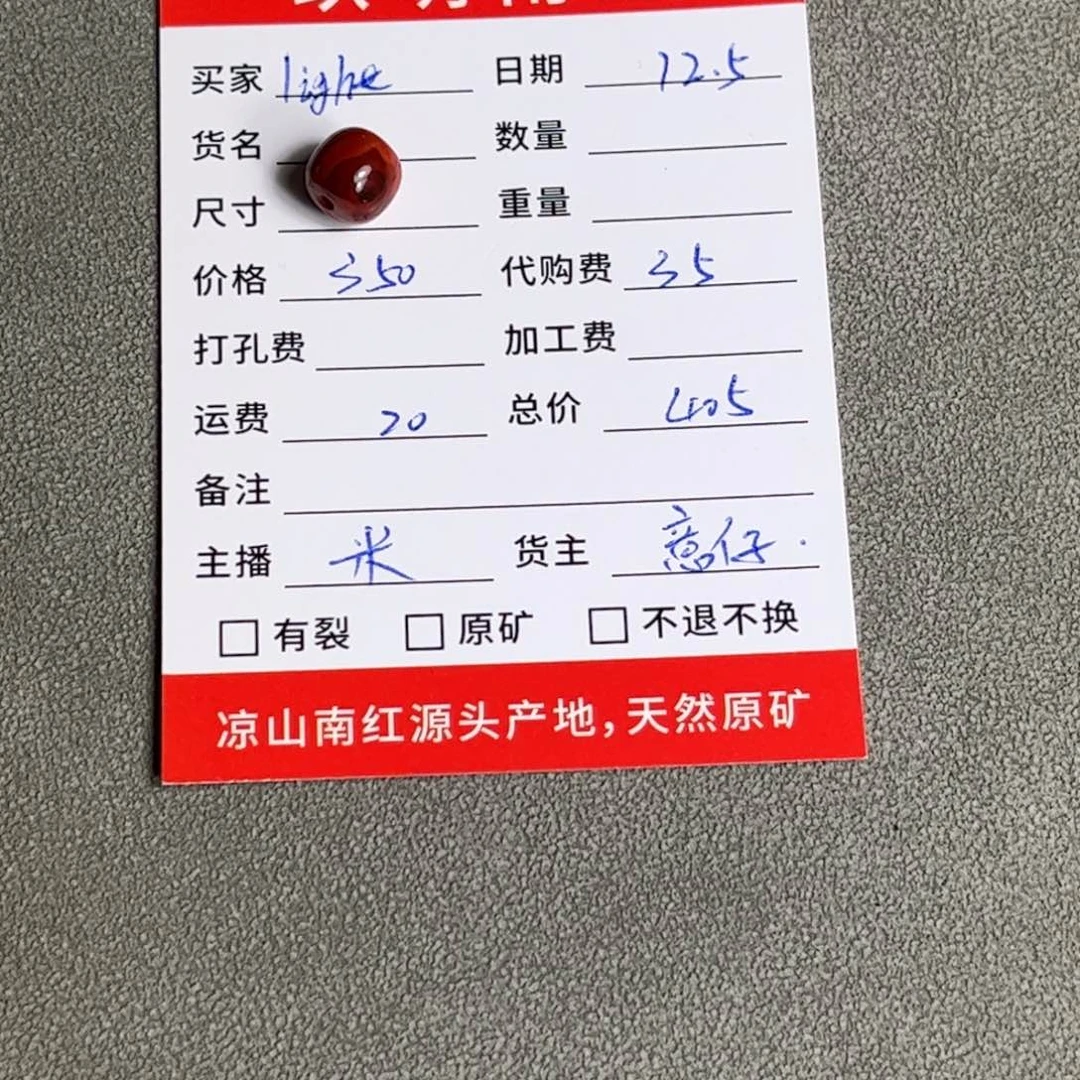 买家 light 日期 12.5
货名 数量
尺寸 重量
价格 350 代购费 35
打孔费 加工费
运费 20 总价 405
备注
主播 米 货主 意仔.
□有裂 □原矿 □不退不换
凉山南红源头产地,天然原矿